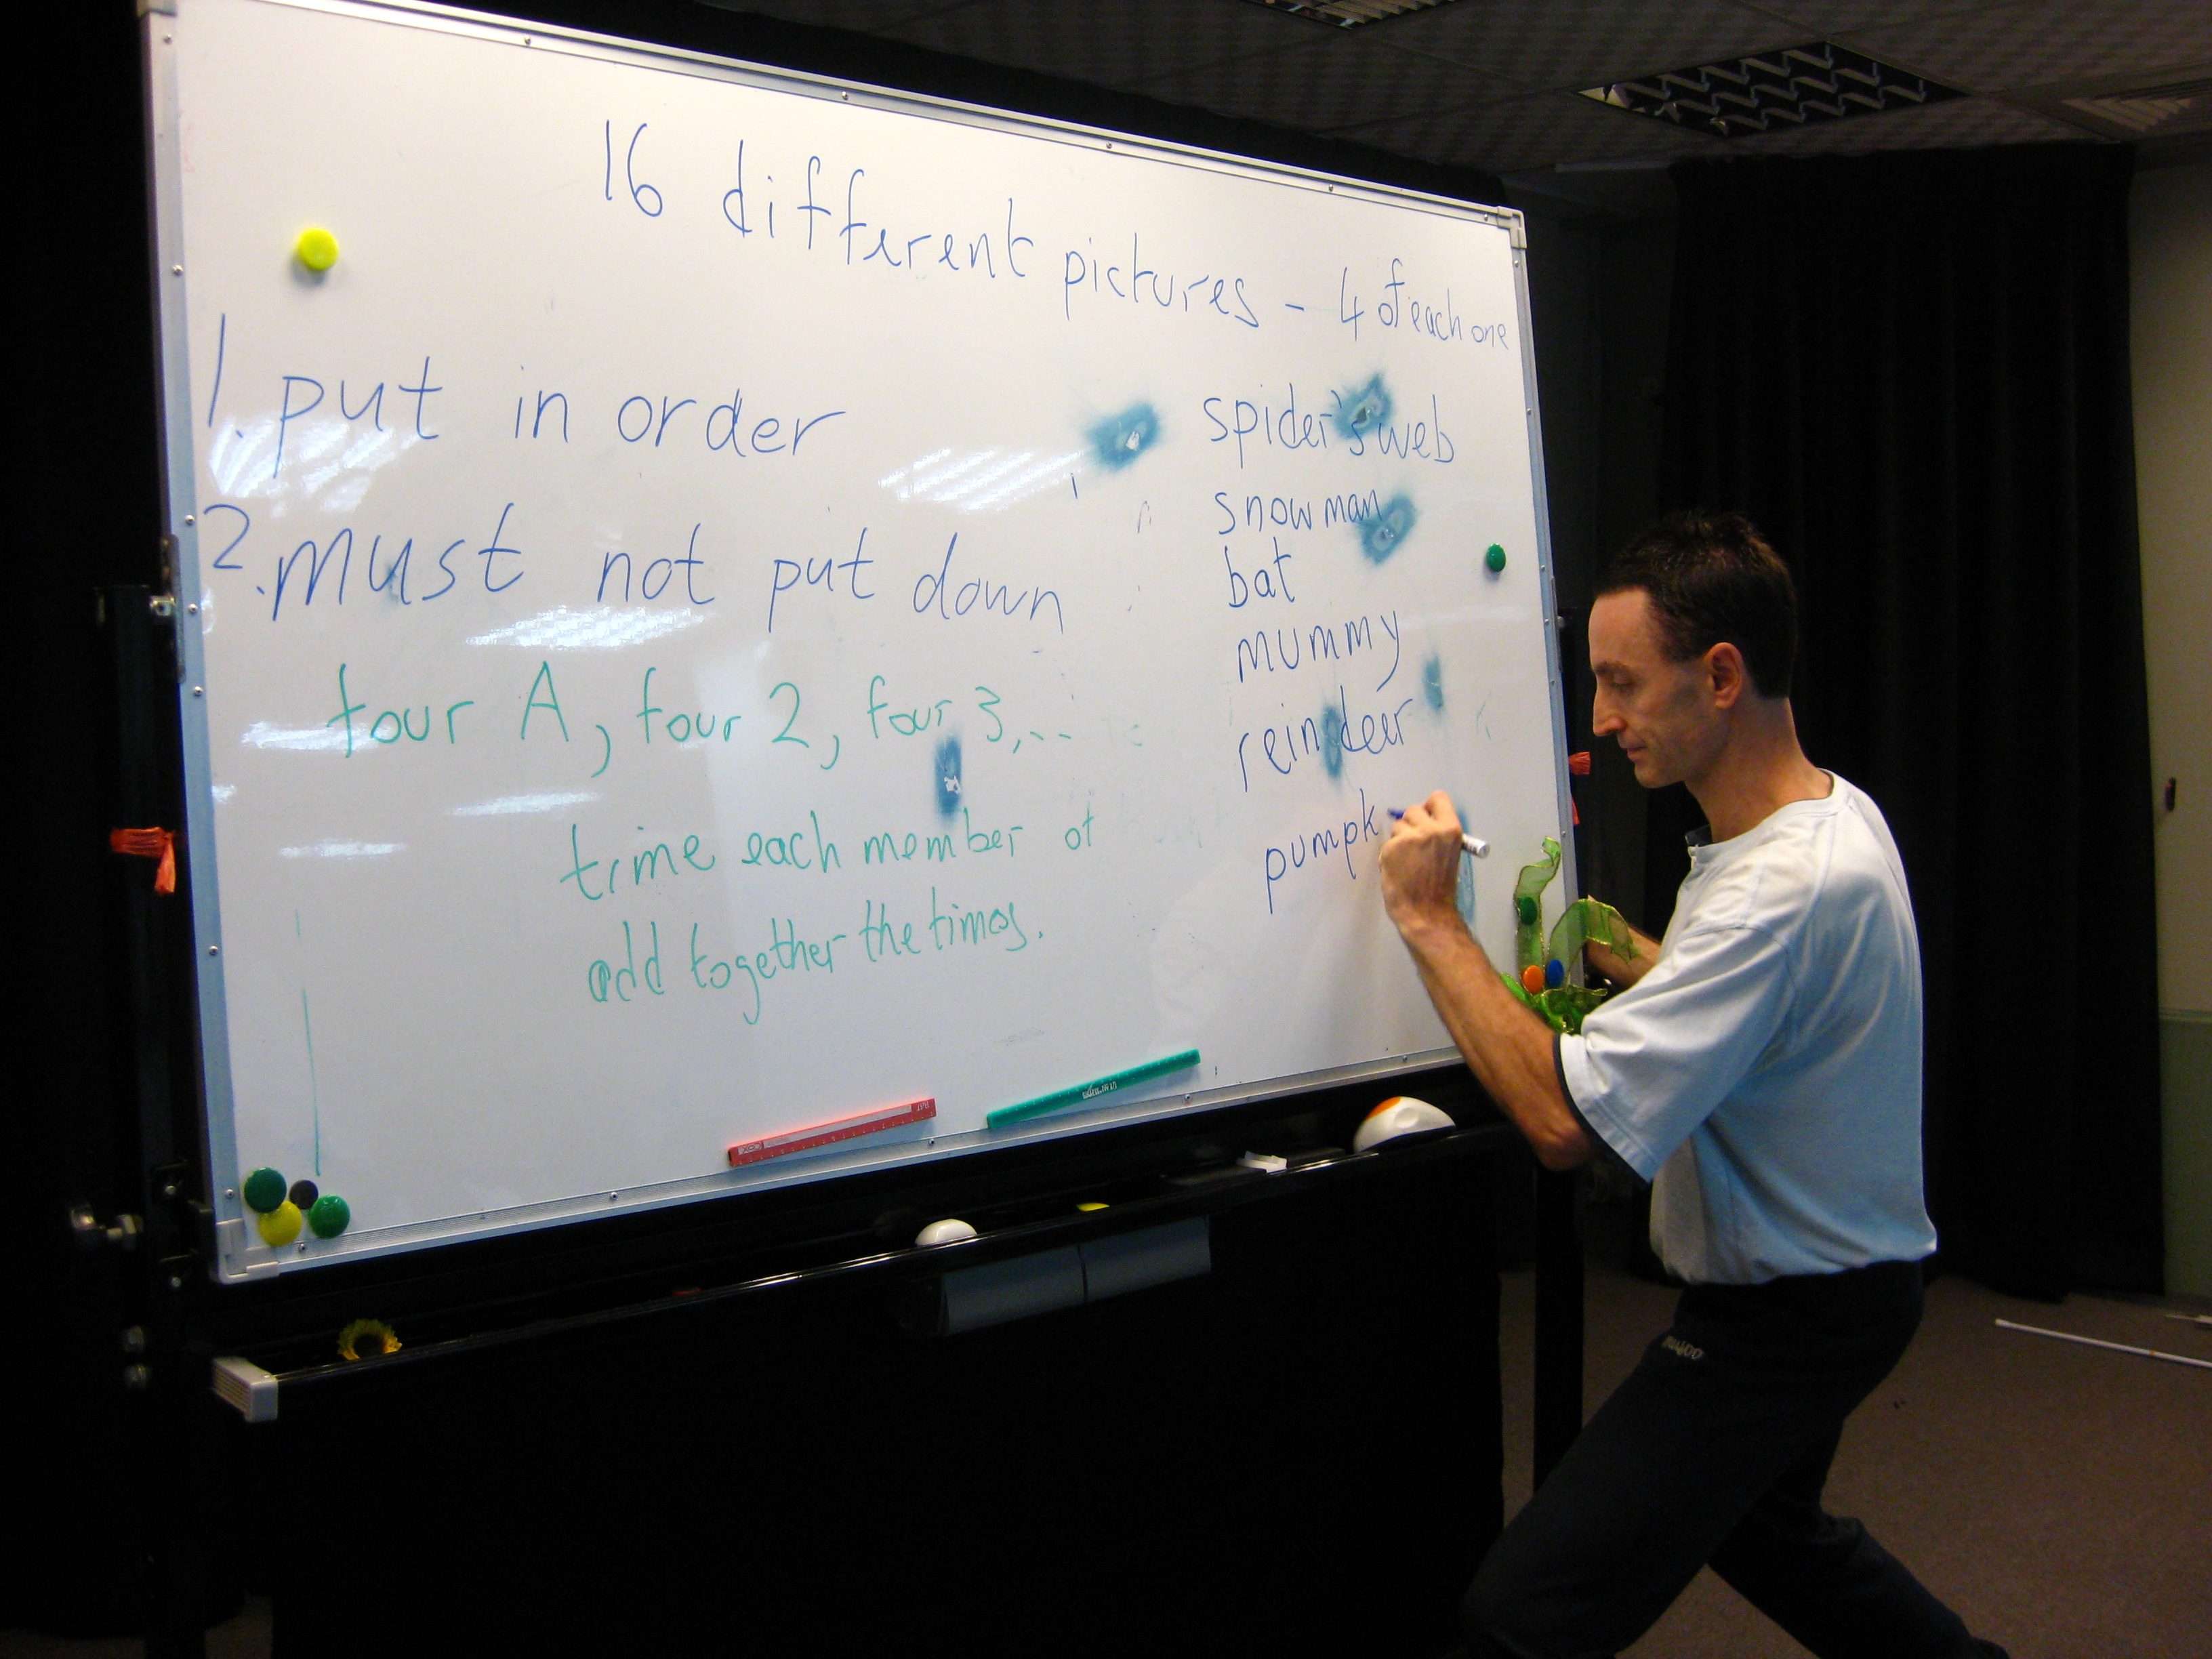 16 different pictures - 4 of each one
1. put in order
2. must not put down
four A, four 2, four 3,...
time each member of
add together the times.
spider's web
snowman
bat
mummy
reindeer
pumpk